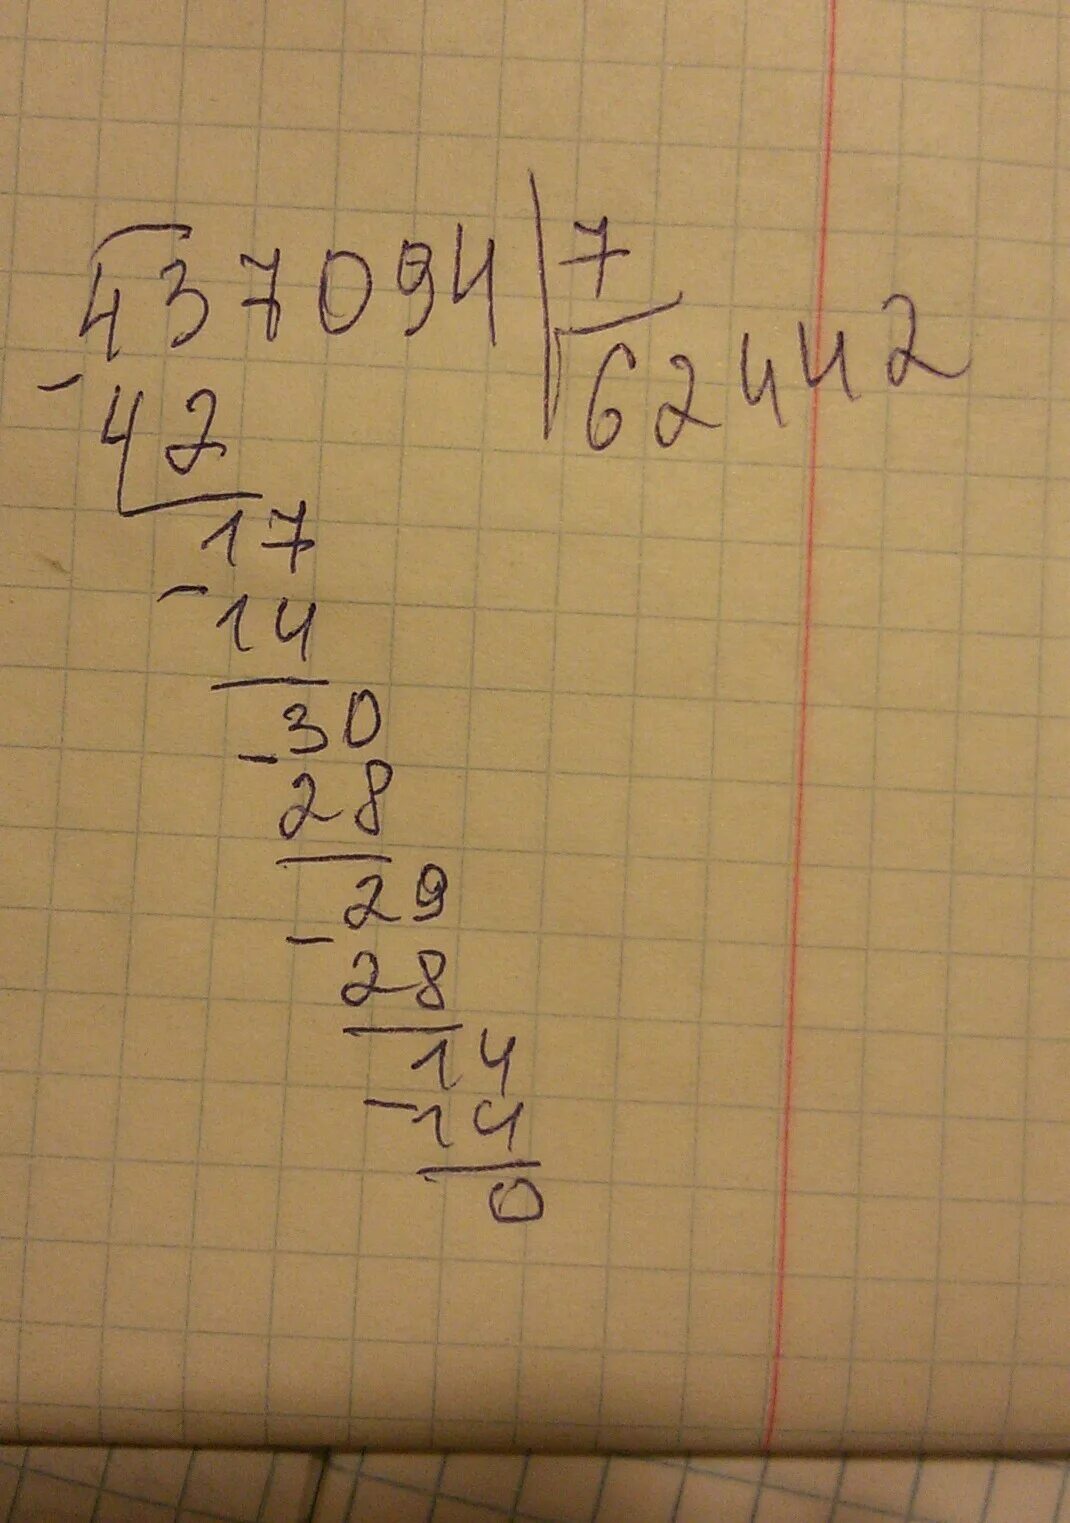 437094 7
62442
- 42
17
- 14
30
- 28
29
- 28
14
- 14
0